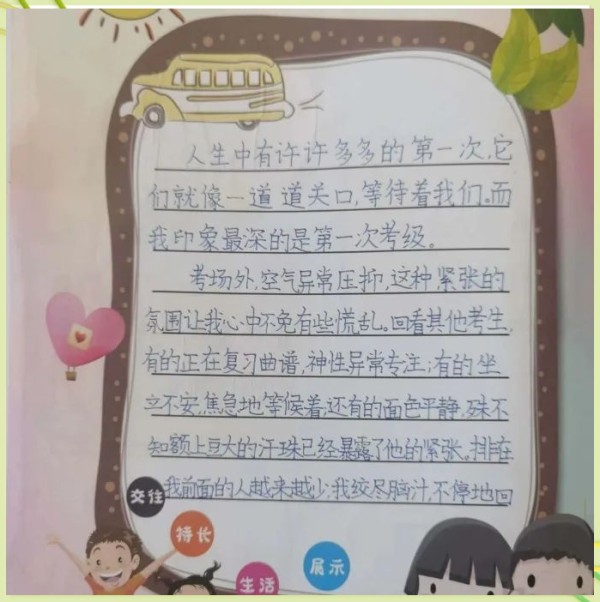 人生中有许许多多的第一次,它
们就像一道道关口,等待着我们。而
我印象最深的是第一次考级。
考场外,空气异常压抑,这种紧张的
氛围让我心中不免有些慌乱。回看其他考生,
有的正在复习曲谱,神性异常专注;有的坐
立不安,焦急地等候着;还有的面色平静,殊不
知额上豆大的汗珠已经暴露了他的紧张。排在
我前面的人越来越少,我绞尽脑汁,不停地回
交往
特长
生活
展示